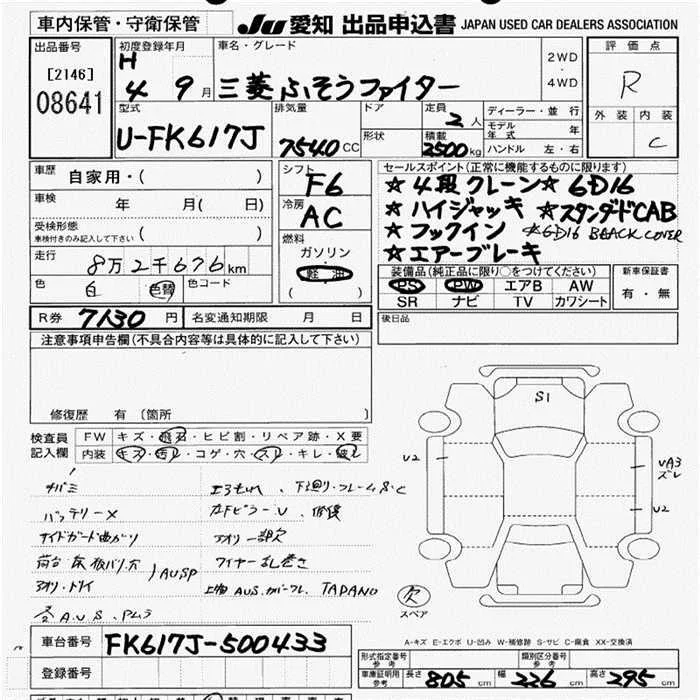 車内保管・守衛保管
JU 愛知 出品申込書 JAPAN USED CAR DEALERS ASSOCIATION
出品番号
[2146]
08641
初度登録年月
H
4 9月
車名・グレード
三菱ふそうファイター
2WD
・
4WD
評価点
R
外装 内装
C
型式
U-FK617J
排気量
7540 CC
ドア
形状
定員
2 人
積載
2500 kg
ディーラー・並行
モデル年式 年
ハンドル 左・右
車歴
自家用・( )
車検 年 月( 日)
受検形態
車検付きのみ記入して下さい ( )
走行
8万2千676 km
色
白 色替
色コード
シフト
F6
冷房
AC
燃料
ガソリン
・
軽油
( )
セールスポイント(正常に機能するものに限ります)
☆4段クレーン☆6D16
☆ハイジャッキ ☆スタンダードCAB
☆フックイン ☆6D16 BAACK COVER
☆エアーブレーキ
装備品(純正品に限り○をつけてください)
PS PW エアB AW
SR ナビ TV カワシート
新車保証書
有・無
R券 7130 円
名変通知期限 月 日
後日品
注意事項申告欄(不具合内容等は具体的に記入して下さい)
修復歴 有 〔箇所 〕
検査員
記入欄
FW キズ・飛石・ヒビ割・リペア跡・X要
内装 キズ・汚れ・コゲ・穴・スレ・キレ・破レ
バッテリーX
サイドガード曲がり
アオリ一部欠
ワイヤー乱巻き
AUSP
TADANO
S1
U2
UA3
ズレ
U2
欠
スペア
A-キズ E-エクボ U-凹み W-補修跡 S-サビ C-腐食 XX-交換済
車台番号 FK617J-500433
登録番号
形式指定番号
参考
類別区分番号
参考
車庫証明用
参考
長さ 805 cm 幅 226 cm 高さ 295 cm